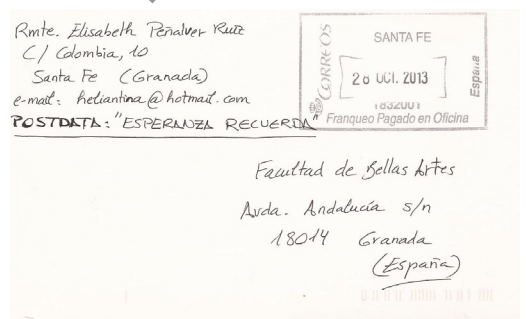 Rmte. Elisabeth Peñalver Ruiz
C/ Colombia, 10
Santa Fe (Granada)
e-mail: heliantina@hotmail.com
POSTDATA: "ESPERANZA RECUERDA"
CORREOS
SANTA FE
28 OCT. 2013
1832001
Franqueo Pagado en Oficina
España
Facultad de Bellas Artes
Avda. Andalucía s/n
18014 Granada
(España)